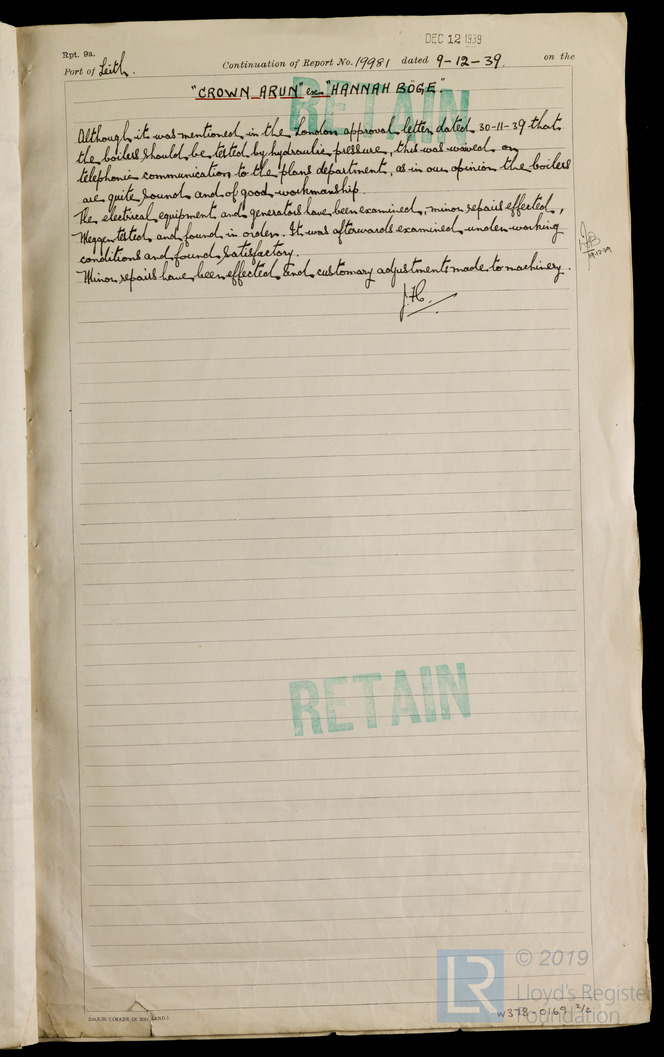 DEC 12 1939
Rpt. 9a.
Port of Leith. Continuation of Report No. 19981 dated 9-12-39. on the
"CROWN ARUN" ex "HANNAH BÖGE".
RETAIN
Although it was mentioned in the London approval letter dated 30-11-39 that
the boilers should be tested by hydraulic pressure, this was waived on
telephonic communication to the plans department, as in our opinion the boilers
are quite sound and of good workmanship.
The electrical equipment and generators have been examined, minor repairs effected,
Megger tested and found in order. It was afterwards examined under working
conditions and found satisfactory.
Minor repairs have been effected and customary adjustments made to machinery.
J.H.
RETAIN
© 2019
LR
Lloyd's Register
Foundation
W378-0169 2/2